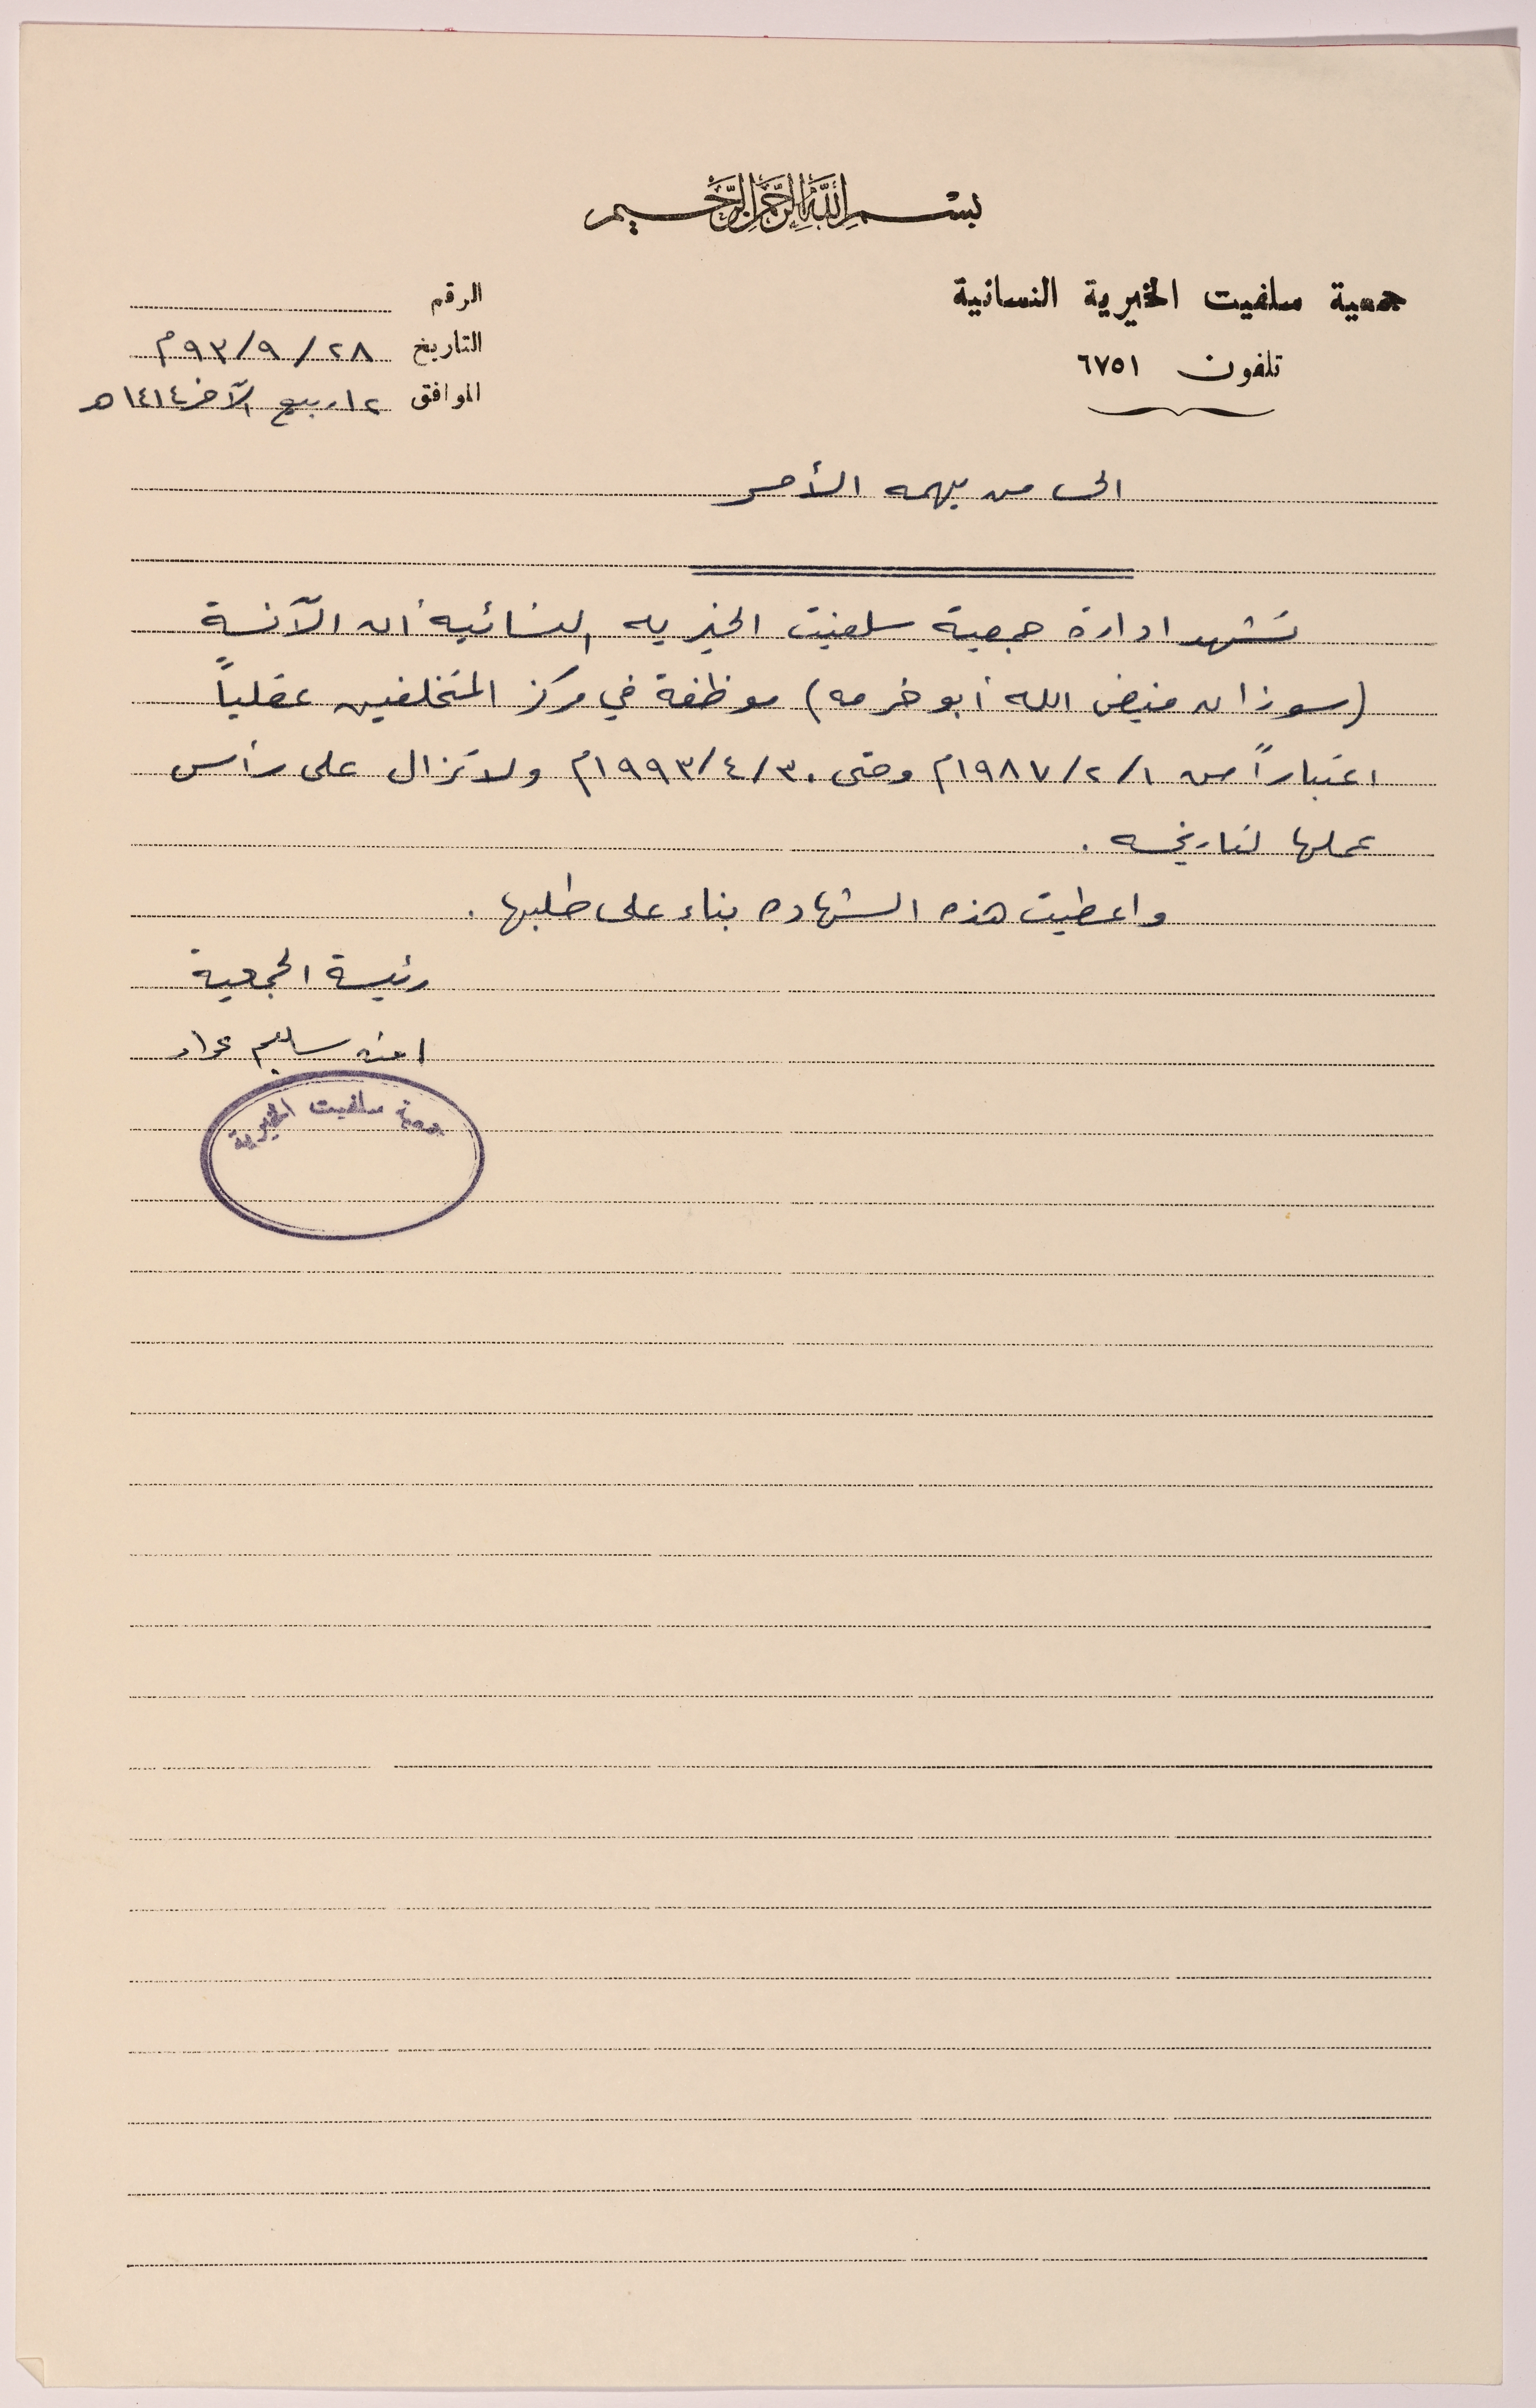 بسم الله الرحمن الرحيم
جمعية سلفيت الخيرية النسائية
تلفون ٦٧٥١
الرقم
التاريخ ٢٨/٩/٩٣م
الموافق ١٢ ربيع الآخر ١٤١٤هـ
الى من يهمه الأمر
تشهد ادارة جمعية سلفيت الخيريه النسائيه أن الآنسة
(سوزان فيض الله أبو خرمه) موظفة في مركز المتخلفين عقلياً
اعتباراً من ١/٢/١٩٨٧م وحتى ٣٠/٤/١٩٩٣م ولا تزال على رأس
عملها لتاريخه .
واعطيت هذه الشهاده بناء على طلبها .
رئيسة الجمعية
امنه سليم عواد
جمعية سلفيت الخيرية